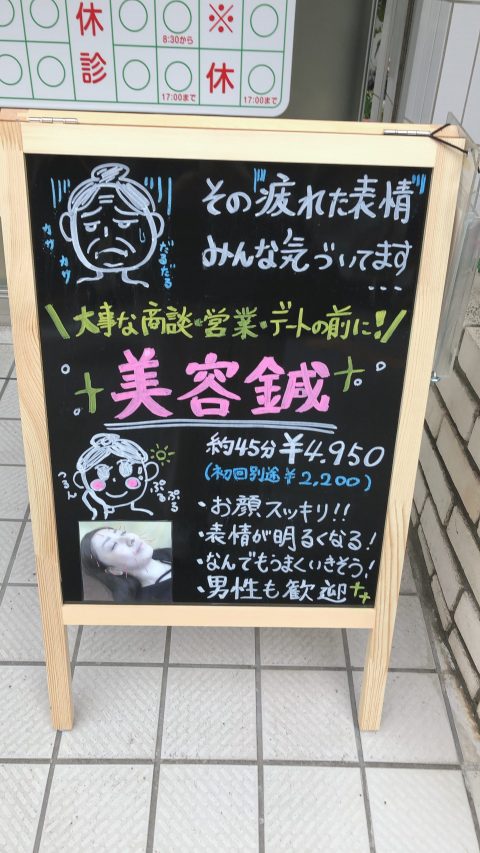 休診
※
休
8:30から
17:00まで
17:00まで
その"疲れた表情"
みんな気づいてます
...
カサカサ
だるだる
\大事な商談・営業・デートの前に!/
美容鍼
約45分 ¥4,950
(初回別途¥2,200)
つるん
ぷるぷる
・お顔スッキリ!!
・表情が明るくなる!
・なんでもうまくいきそう!
・男性も歓迎